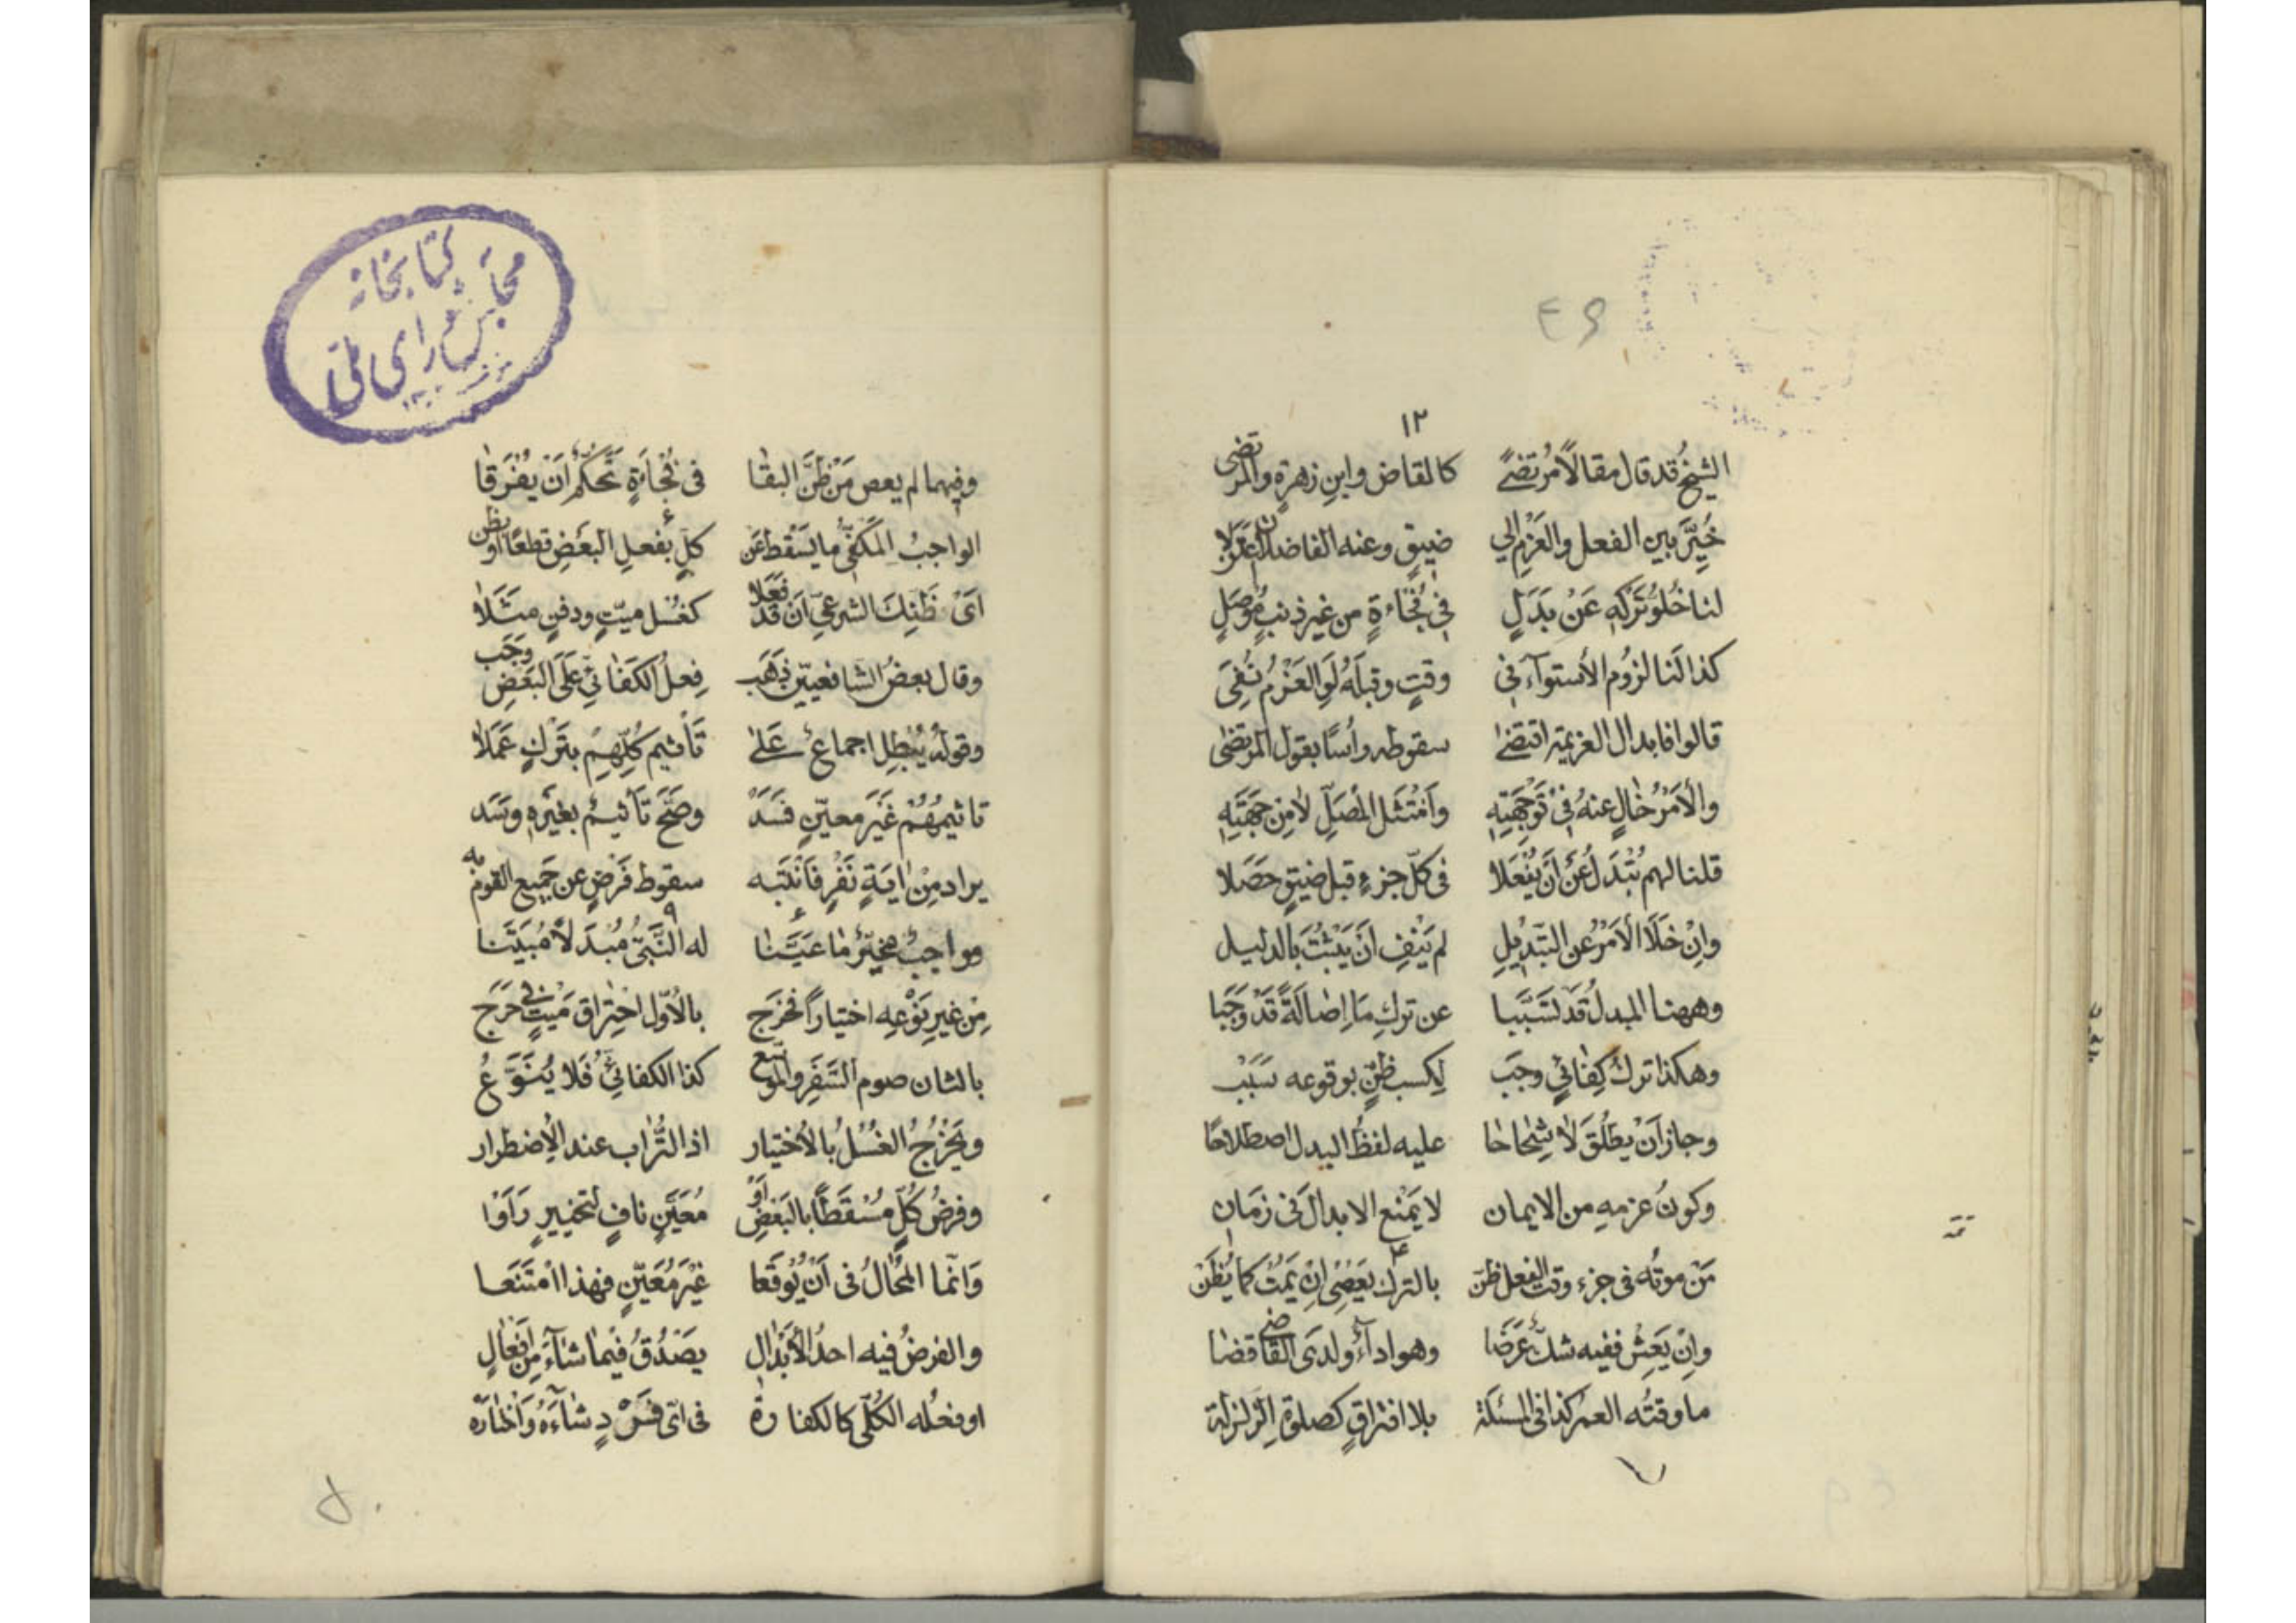 ١٢
الشيخُ قد قال مقالاً مُرتضىً كالقاض وابنِ زهرةٍ والمرتضى
خُيِّرَ بين الفعل والعَزمِ إلي ضيقٍ وعنه الفاضلان
لنا خُلوُّ تَركِهِ عَنْ بَدَلٍ في فُجاءةٍ من غير ذنبٍ مُوصَلٍ
كذا لَنا لزوُم الأستوآء في وقتٍ وقبلَهُ لَوِ العَزْمُ نُفِىَ
قالوا فابدال العزيمة اقتضىٰ سقوطه رأسًا بقول المرتضىٰ
والأمْرُ خٰالٍ عنهُ في تَوَجُّهتِهِ وامْتَثَل المُصَلِّ لامِن جِهَتِهِ
قلنا لهم تُبْدَلُ عَنْ أنْ يُفْعَلا في كلّ جزءٍ قبل ضيقٍ حَصَلا
وإنْ خَلَا الأمْرُ عن التَبْديلِ لم يَنْفِ أنْ يَثْبُتَ بالدليل
وههنا المبدلُ قَد تَسَبَّبا عن تركِ مَا إصٰالَةً قَدْ وَجَبا
وهكذا تركُ كِفٰائيٍ وجَبَ لِكسب ظنٍّ بوقوعه سَبَبْ
وجاز أنْ يُطلَقَ لا شِحاحا عليه لفظُ البدل اصطلاحًا
وكونُ عزمهِ من الايمان لا يَمْنع الابدالَ في زَمَانِ
مَنْ موتُه في جزء وقتِ الفعل ظنّ بالترك يَعْصِى إنْ يَمُتْ كما يُظَنْ
وإنْ يَعِشْ ففيه شكٌ عَرَضَا وهو ادآءٌ ولدَى القاضي قضا
ما وقتُه العمر كذا في المسئلة بلا افتراقٍ كصلوةِ الزلزلة
٤٩
وفيهما لم يعص مَنْ ظَنَّ البقٰا في فُجٰاءَةٍ تَحَكُّمٌ أنْ يُفْرَقٰا
الواجبُ المَكفِيُّ ما يَسْقط عَنْ كلٍّ بفعلِ البعَضِ قطعًا أو بظن
اىْ ظَنِّكَ الشرعيّ أنْ قَدْ فَعَلا كغُسل ميّتٍ ودفنٍ مثَلاٰ
وقال بعضُ الشافعيّين ذَهَب فِعلُ الكَفٰائيِّ عَلَى البَعَضِ وَجَب
وقولُهُ يُبْطِل اجماعٌ عَلىٰ تَأثيم كُلِّهِمْ بتَركٍ عَمَلاٰ
تاثيمُهُمْ غَيرَ معيّنٍ فَسَدْ وصَحَّ تأثيمٌ بغَيْرِهِ وسَد
يراد مِنْ اٰيةٍ نَفْرٍ فَانْتَبه سقوط فَرَضٍ عن جَميع القوم به
وواجبٌ مخيّرٌ مٰا عَيَّنٰا له النَّبىُّ مُبدَلاً مُبَيَّنا
مِنْ غيرِ نَوْعِه اختياراً فخرَج بالأوّل احْتِراق مَيْتٍ في حَرَج
بالثان صوم السَّفَرِ والموسّع كذا الكفائيُّ فَلا يُنَوَّعُ
ويَخْرُجُ الغُسْلُ بالأختيار اذ التُّراب عند الإضطرار
وفرضُ كُلٍّ مُسْقَطًا بالبَعَضِ أوْ مُعَيَّنٍ نافٍ لتخييرٍ رَأَوْا
وَانّما المُحالُ في أنْ يُوقَعا غيْرَ مُعَيّنٍ فهذا امْتَنَعا
والفرضُ فيه احدُ الأبدْالِ يصَدُقُ فيما شاءَ مِن أفعٰالٍ
او فعلُه الكُلّى كالكفارةُ في اىّ فَرْدٍ شاءَهُ واختٰارَهْ
كتابخانه
مجلس شوراى ملّى